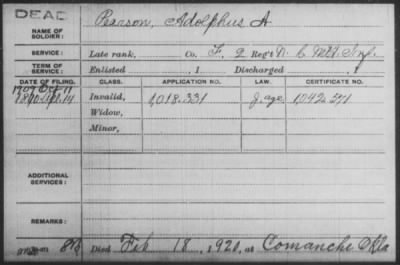 DEAD
NAME OF SOLDIER: Pearson, Adolphus A.
SERVICE: Late rank, Co. F, 2 Reg't N. C. Mtd. Inf.
TERM OF SERVICE: Enlisted , 1 Discharged , 1
DATE OF FILING. CLASS. APPLICATION NO. LAW. CERTIFICATE NO.
1907 Oct 11
Invalid, 1,018.331 J. age. 1,042.571
Widow,
Minor,
ADDITIONAL SERVICES:
REMARKS:
Died Feb 18, 1920, at Comanche Okla